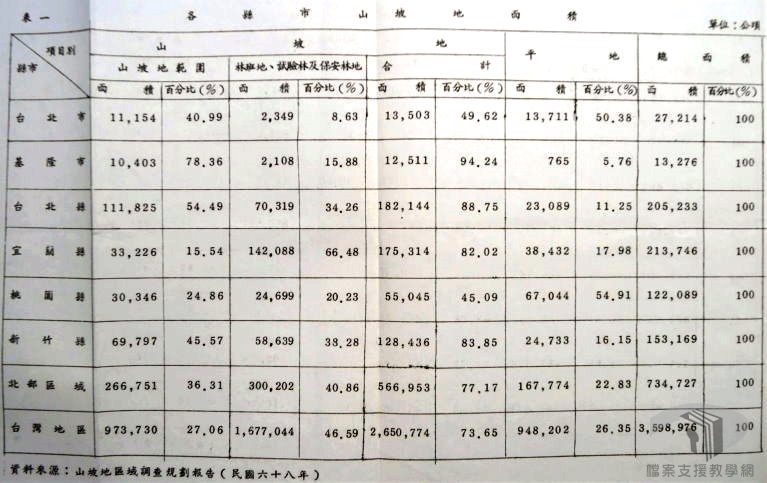 表一 各縣市山坡地面積 單位：公頃
項目別 山坡地 平地 總面積
縣市 山坡地範圍 林班地、試驗林及保安林地 合計
面積 百分比(%) 面積 百分比(%) 面積 百分比(%) 面積 百分比(%) 面積 百分比(%)
台北市 11,154 40.99 2,349 8.63 13,503 49.62 13,711 50.38 27,214 100
基隆市 10,403 78.36 2,108 15.88 12,511 94.24 765 5.76 13,276 100
台北縣 111,825 54.49 70,319 34.26 182,144 88.75 23,089 11.25 205,233 100
宜蘭縣 33,226 15.54 142,088 66.48 175,314 82.02 38,432 17.98 213,746 100
桃園縣 30,346 24.86 24,699 20.23 55,045 45.09 67,044 54.91 122,089 100
新竹縣 69,797 45.57 58,639 38.28 128,436 83.85 24,733 16.15 153,169 100
北部區域 266,751 36.31 300,202 40.86 566,953 77.17 167,774 22.83 734,727 100
台灣地區 973,730 27.06 1,677,044 46.59 2,650,774 73.65 948,202 26.35 3,598,976 100
資料來源：山坡地區域調查規劃報告（民國六十八年）
檔案支援教學網